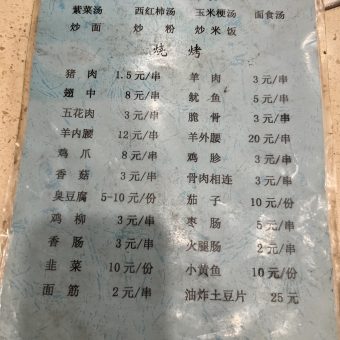 紫菜汤 西红柿汤 玉米梗汤 面食汤
炒面 炒粉 炒米饭
烧烤
猪肉 1.5元/串 羊肉 3元/串
翅中 8元/串 鱿鱼 5元/串
五花肉 3元/串 脆骨 3元/串
羊内腰 12元/串 羊外腰 20元/串
鸡爪 8元/串 鸡胗 3元/串
香菇 3元/串 骨肉相连 3元/串
臭豆腐 5-10元/份 茄子 10元/份
鸡柳 3元/串 枣肠 5元/串
香肠 3元/串 火腿肠 2元/串
韭菜 10元/份 小黄鱼 10元/份
面筋 2元/串 油炸土豆片 25元